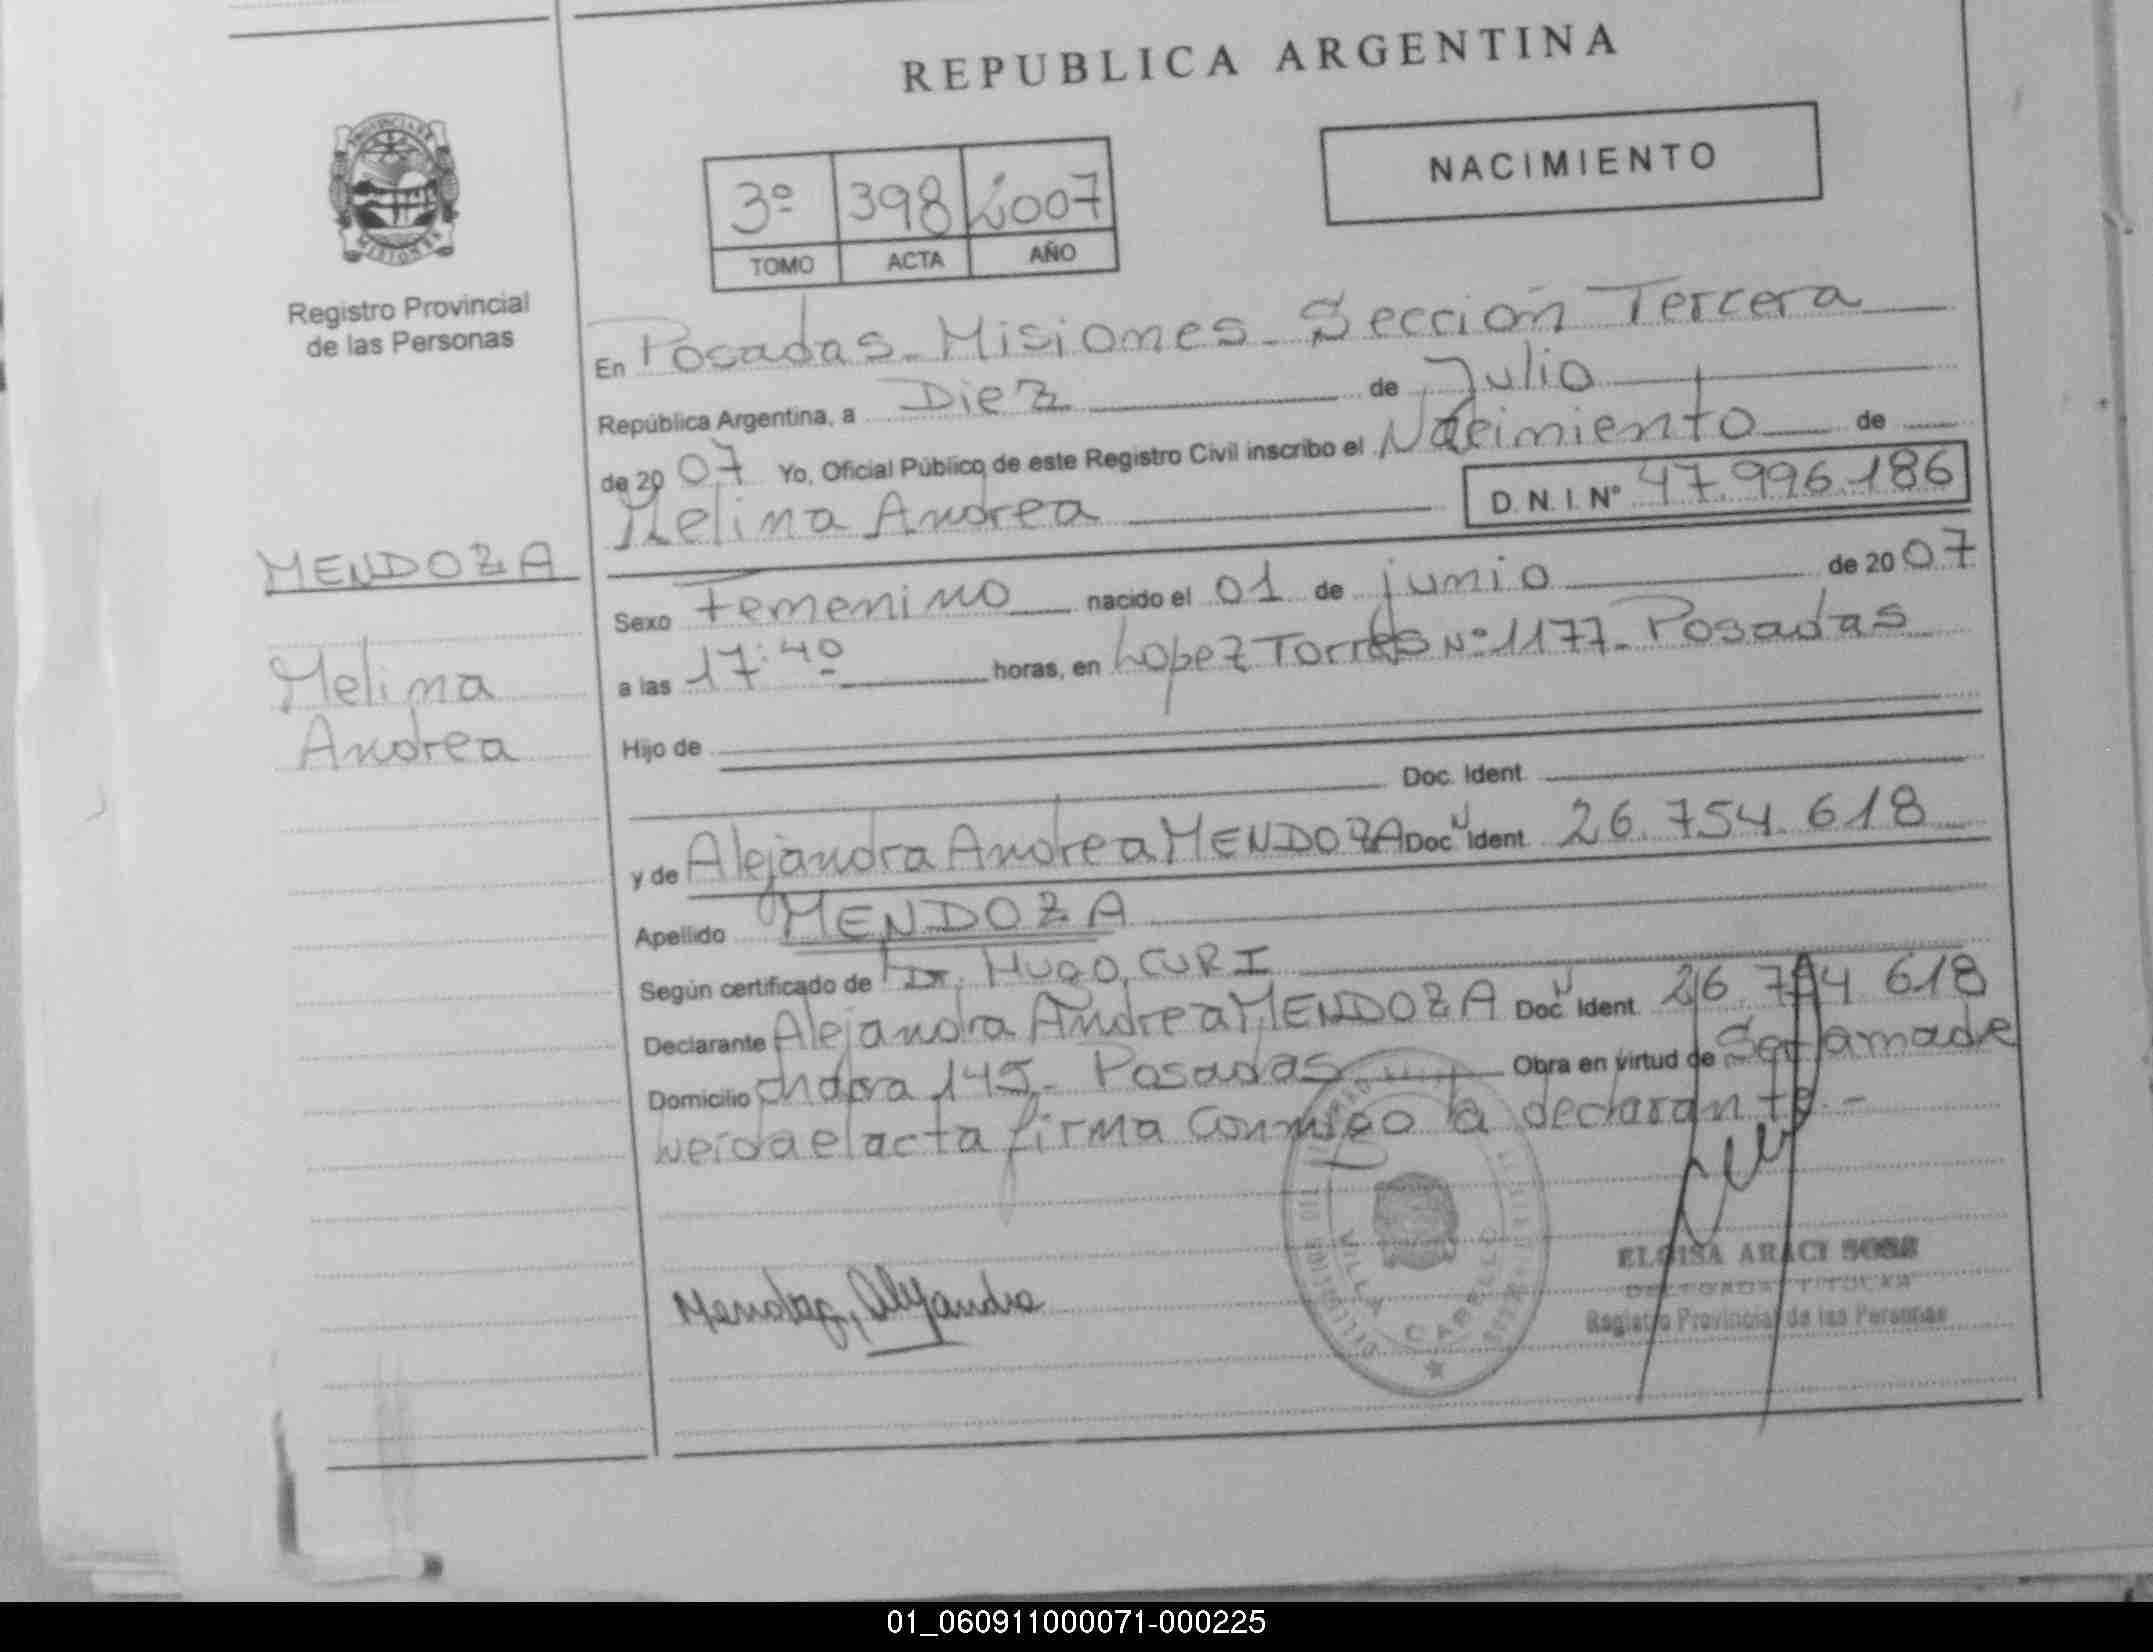 REPUBLICA ARGENTINA
PROVINCIA DE
MISIONES
Registro Provincial
de las Personas
3º 398 2007
TOMO ACTA AÑO
NACIMIENTO
En Posadas-Misiones-Sección Tercera
República Argentina, a Diez de Julio
de 2007 Yo, Oficial Público de este Registro Civil inscribo el Nacimiento de
Melina Andrea D.N.I.Nº 47.996.186
MENDOZA
Melina
Andrea
Sexo Femenino nacido el 01 de junio de 2007
a las 17:40 horas, en Lopez Torres Nº 1177-Posadas
Hijo de
Doc. Ident.
y de Alejandra Andrea MENDOZA Doc. Ident. 26.754.618
Apellido MENDOZA
Según certificado de Dr. Hugo CURI
Declarante Alejandra Andrea MENDOZA Doc. Ident. 26.754 618
Domicilio chacra 145- Posadas Obra en virtud de Ser
el acta firma conmigo la declarante.-
Mendoza, Alejandra
VILLA CABELLO
ELOISA ARACI
Registro Provincial de las Personas
01_060911000071-000225